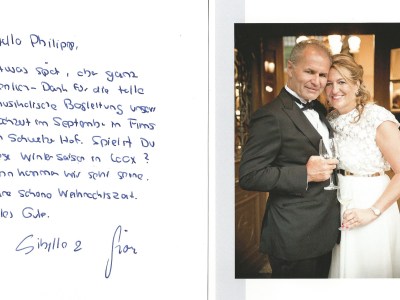 allo Philipp,
twas spät, aber ganz
lichen Dank für die tolle
musikalische Begleitung unser
ochzeit im September in Flims
m Schweizer Hof. Spielst Du
ese Wintersaison in LAAX ?
ann kommen wir sehr gerne.
ne schöne Weihnachtszeit.
les Gute.
Sibylle &